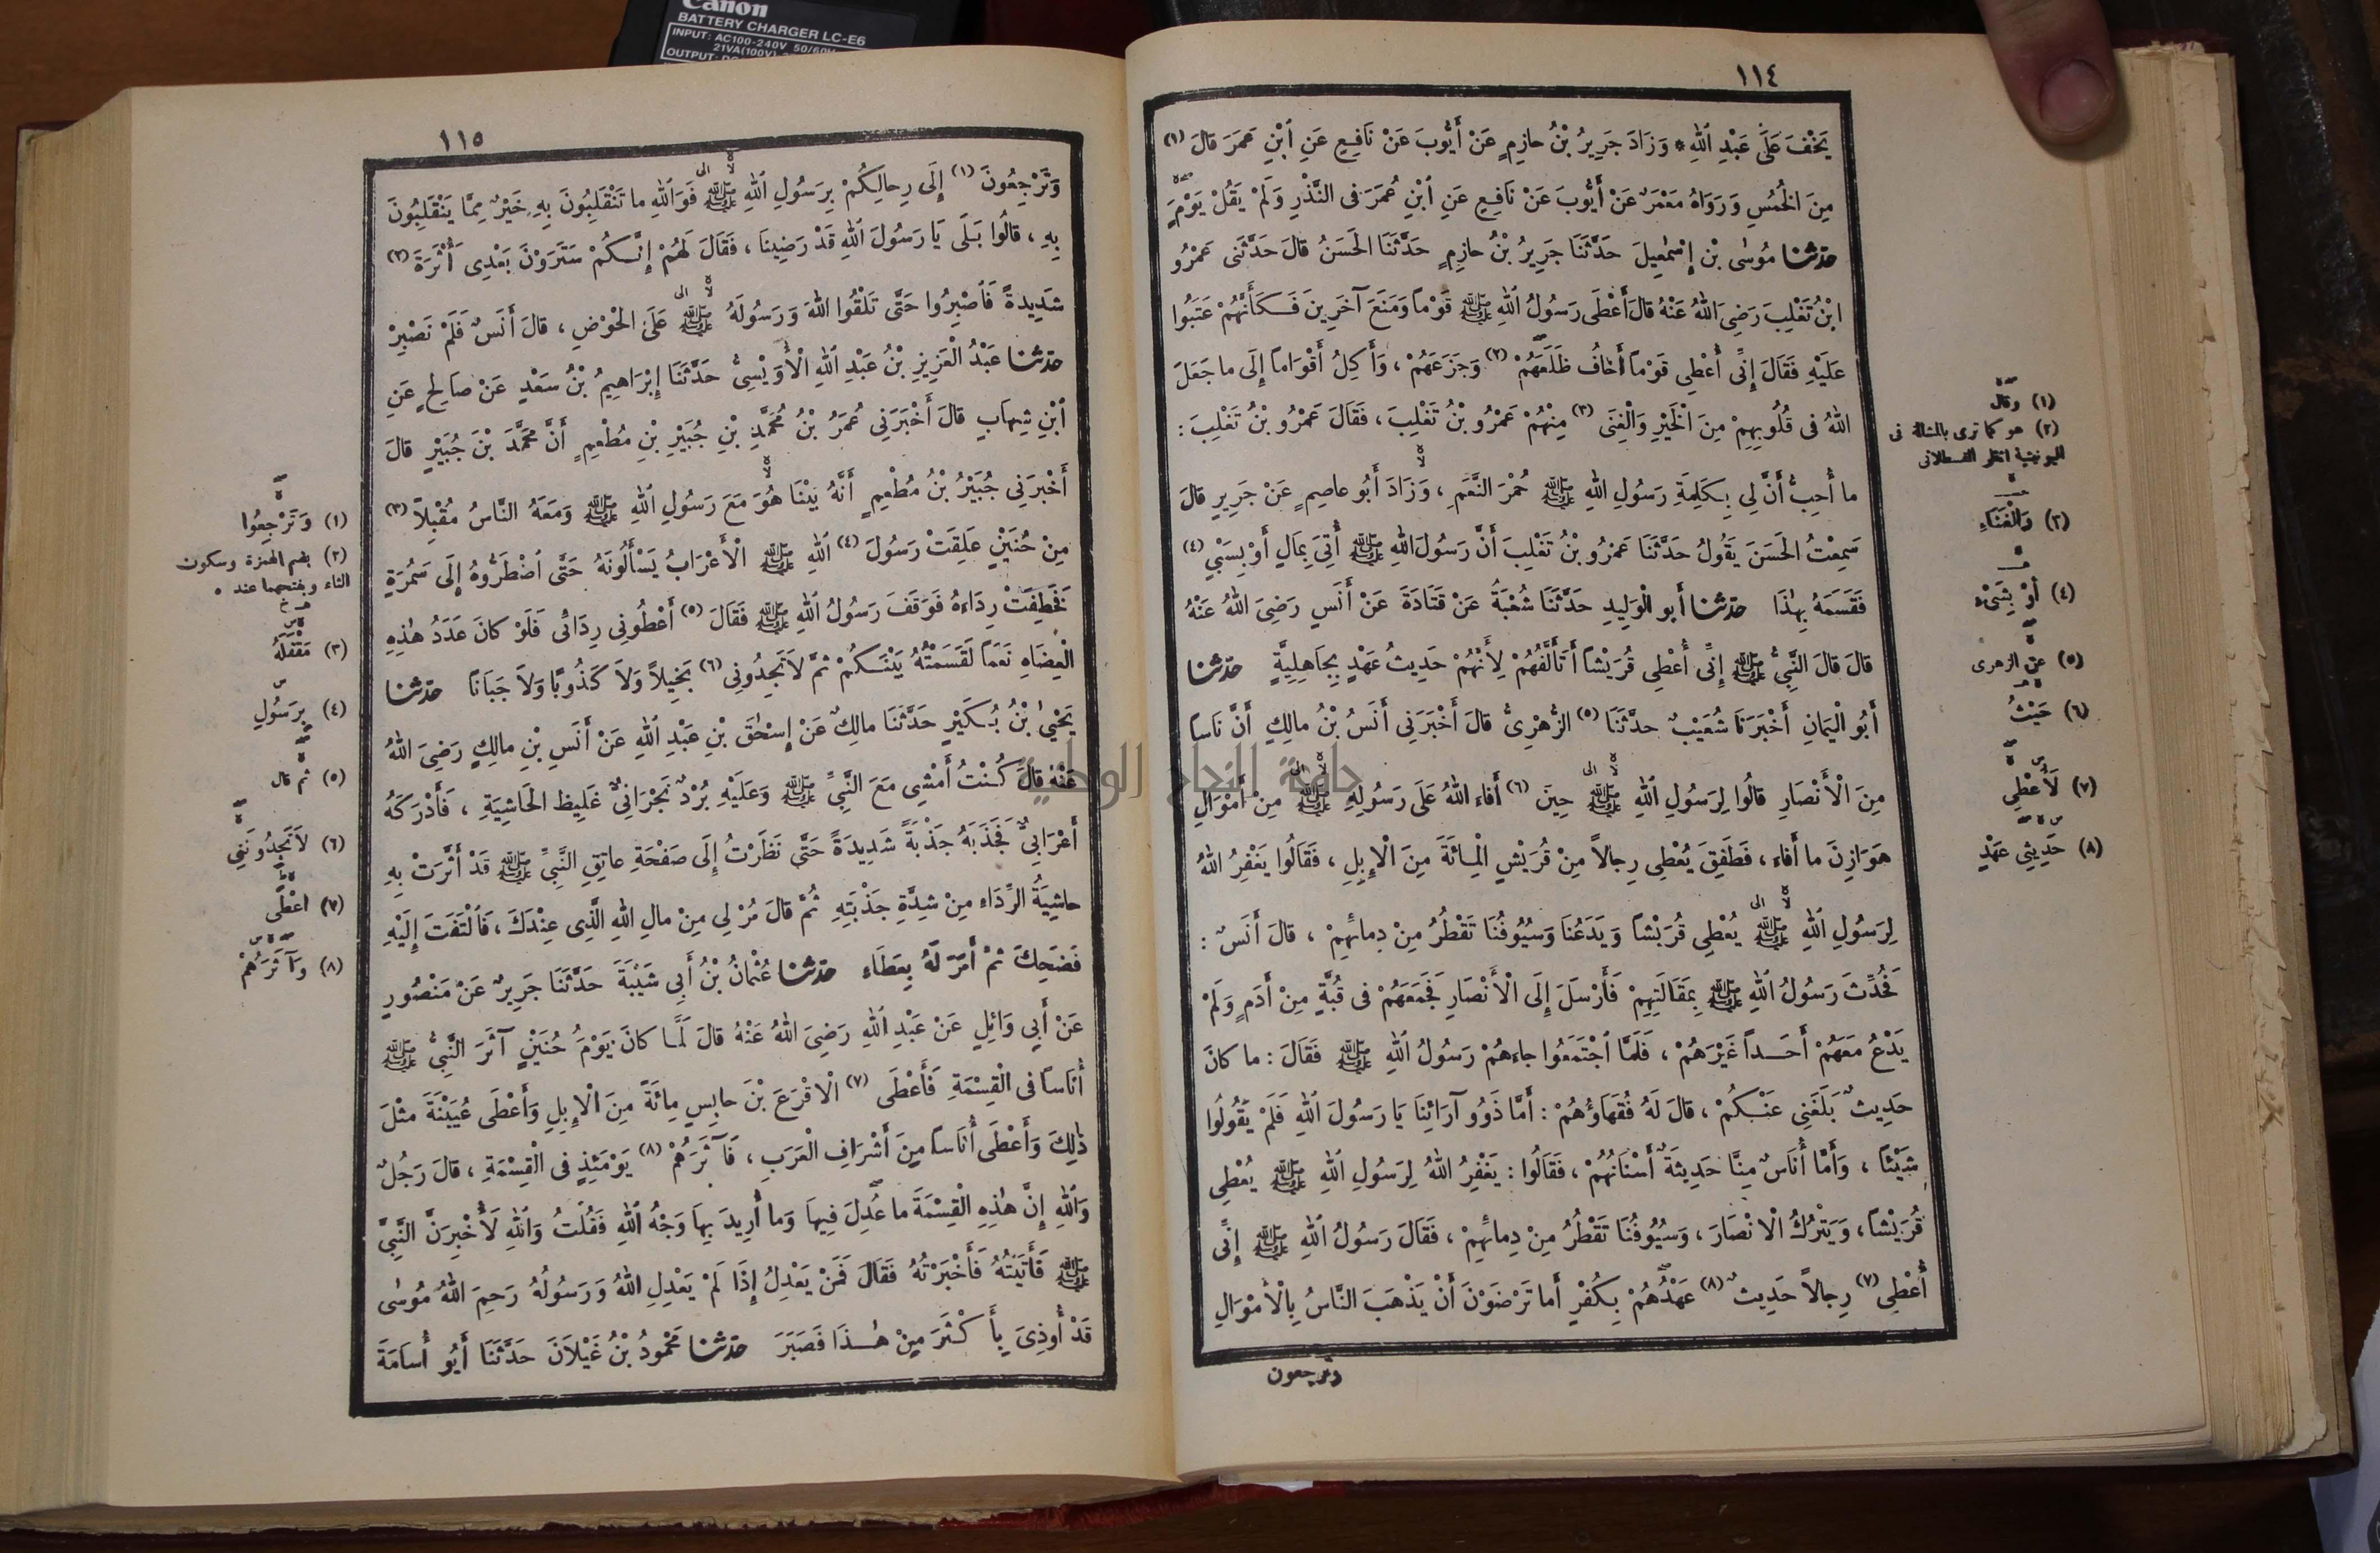 Canon
BATTERY CHARGER LC-E6
INPUT: AC100-240V 50/60H
21VA(100V)
OUTPUT: DC
١١٤
يَخْفَ عَلَى عَبْدِ اللهِ * وَزَادَ جَرِيرُ بْنُ حازِمٍ عَنْ أَيُّوبَ عَنْ نَافِعٍ عَنِ ابْنِ عُمَرَ قالَ (١)
مِنَ الْخُمُسِ وَرَوَاهُ مَعْمَرٌ عَنْ أَيُّوبَ عَنْ نَافِعٍ عَنِ ابْنِ عُمَرَ فى النَّذْرِ وَلَمْ يَقُلْ يَوْمَ
حدثنا مُوسَى بْنُ إِسْمٰعِيلَ حَدَّثَنَا جَرِيرُ بْنُ حازِمٍ حَدَّثَنَا الْحَسَنُ قالَ حَدَّثَنِى عَمْرُو
ابْنُ تَغْلِبَ رَضِىَ اللهُ عَنْهُ قالَ أَعْطَى رَسُولُ اللهِ ﷺ قَوْماً وَمَنَعَ آخَرِينَ فَكَأَنَّهُمْ عَتَبُوا
عَلَيْهِ فَقَالَ إِنِّى أُعْطِى قَوْماً أَخافُ ظَلَعَهُمْ (٢) وَجَزَعَهُمْ ، وَأَكِلُ أَقْوَاماً إِلَى ما جَعَلَ
اللهُ فى قُلُوبِهِمْ مِنَ الْخَيْرِ وَالْغِنَى (٣) مِنْهُمْ عَمْرُو بْنُ تَغْلِبَ ، فَقَالَ عَمْرُو بْنُ تَغْلِبَ :
ما أُحِبُّ أَنَّ لِى بِكَلِمَةِ رَسُولِ اللهِ ﷺ حُمْرَ النَّعَمِ ، وَزَادَ أَبُو عاصِمٍ عَنْ جَرِيرٍ قالَ
سَمِعْتُ الْحَسَنَ يَقُولُ حَدَّثَنَا عَمْرُو بْنُ تَغْلِبَ أَنَّ رَسُولَ اللهِ ﷺ أُتِىَ بِمَالٍ أَوْ بِسَبْىٍ (٤)
فَقَسَمَهُ بِهٰذَا حدثنا أَبُو الْوَلِيدِ حَدَّثَنَا شُعْبَةُ عَنْ قَتَادَةَ عَنْ أَنَسٍ رَضِىَ اللهُ عَنْهُ
قالَ قالَ النَّبِىُّ ﷺ إِنِّى أُعْطِى قُرَيْشاً أَتَأَلَّفُهُمْ لِأَنَّهُمْ حَدِيثُ عَهْدٍ بِجَاهِلِيَّةٍ حدثنا
أَبُو الْيَمَانِ أَخْبَرَنَا شُعَيْبٌ حدَّثَنَا (٥) الزُّهْرِىُّ قالَ أَخْبَرَنِى أَنَسُ بْنُ مالِكٍ أَنَّ نَاساً
مِنَ الْأَنْصَارِ قالُوا لِرَسُولِ اللهِ ﷺ حِينَ (٦) أَفاءَ اللهُ عَلَى رَسُولِهِ ﷺ مِنْ أَمْوَالِ
هَوَازِنَ ما أَفاءَ ، فَطَفِقَ يُعْطِى رِجالاً مِنْ قُرَيْشٍ الْمِائَةَ مِنَ الْإِبِلِ ، فَقَالُوا يَغْفِرُ اللهُ
لِرَسُولِ اللهِ ﷺ يُعْطِى قُرَيْشاً وَيَدَعُنَا وَسُيُوفُنَا تَقْطُرُ مِنْ دِمائِهِمْ ، قالَ أَنَسٌ :
فَحُدِّثَ رَسُولُ اللهِ ﷺ بِمَقَالَتِهِمْ فَأَرْسَلَ إِلَى الْأَنْصَارِ فَجَمَعَهُمْ فى قُبَّةٍ مِنْ أَدَمٍ وَلَمْ
يَدْعُ مَعَهُمْ أَحَداً غَيْرَهُمْ ، فَلَمَّا اجْتَمَعُوا جاءَهُمْ رَسُولُ اللهِ ﷺ فَقَالَ : ما كانَ
حَدِيثٌ بَلَغَنِى عَنْكُمْ ، قالَ لَهُ فُقَهَاؤُهُمْ : أَمَّا ذَوُو آرَائِنَا يَا رَسُولَ اللهِ فَلَمْ يَقُولُوا
شَيْئاً ، وَأَمَّا أُنَاسٌ مِنَّا حَدِيثَةٌ أَسْنَانُهُمْ ، فَقَالُوا : يَغْفِرُ اللهُ لِرَسُولِ اللهِ ﷺ يُعْطِى
قُرَيْشاً ، وَيَتْرُكُ الْانْصَارَ ، وَسُيُوفُنَا تَقْطُرُ مِنْ دِمائِهِمْ ، فَقَالَ رَسُولُ اللهِ ﷺ إِنِّى
أُعْطِى (٧) رِجالاً حَدِيثٌ (٨) عَهْدُهُمْ بِكُفْرٍ أَما تَرْضَوْنَ أَنْ يَذْهَبَ النَّاسُ بِالْأَمْوَالِ
وترجعون
(١) وقال
(٢) هو كما ترى بالمشالة فى
اليونينية انظر القسطلانى
(٣) وَالْغَنَاءِ
(٤) أَوْ بِشَىْءٍ
(٥) عن الزهرى
(٦) حَيْثُ
(٧) لَأُعْطِى
(٨) حَدِيثِى عَهْدٍ
جامعة النجاح الوطنية
١١٥
وَتَرْجِعُونَ (١) إِلَى رِحالِكُمْ بِرَسُولِ اللهِ ﷺ فَوَاللهِ ما تَنْقَلِبُونَ بِهِ خَيْرٌ مِمَّا يَنْقَلِبُونَ
بِهِ ، قالُوا بَلَى يَا رَسُولَ اللهِ قَدْ رَضِينَا ، فَقَالَ لَهُمْ إِنَّكُمْ سَتَرَوْنَ بَعْدِى أُثْرَةً (٢)
شَدِيدَةً فَاصْبِرُوا حَتَّى تَلْقَوُا اللهَ وَرَسُولَهُ ﷺ عَلَى الْحَوْضِ ، قالَ أَنَسٌ فَلَمْ نَصْبِرْ
حدثنا عَبْدُ الْعَزِيزِ بْنُ عَبْدِ اللهِ الْأُوَيْسِىُّ حَدَّثَنَا إِبْرَاهِيمُ بْنُ سَعْدٍ عَنْ صَالِحٍ عَنِ
ابْنِ شِهَابٍ قالَ أَخْبَرَنِى عُمَرُ بْنُ مُحَمَّدِ بْنِ جُبَيْرِ بْنِ مُطْعِمٍ أَنَّ مُحَمَّدَ بْنَ جُبَيْرٍ قالَ
أَخْبَرَنِى جُبَيْرُ بْنُ مُطْعِمٍ أَنَّهُ بَيْنَا هُوَ مَعَ رَسُولِ اللهِ ﷺ وَمَعَهُ النَّاسُ مُقْبِلاً (٣)
مِنْ حُنَيْنٍ عَلِقَتْ رَسُولَ (٤) اللهِ ﷺ الْأَعْرَابُ يَسْأَلُونَهُ حَتَّى اضْطَرُّوهُ إِلَى سَمُرَةٍ
فَخَطِفَتْ رِدَاءَهُ فَوَقَفَ رَسُولُ اللهِ ﷺ فَقَالَ (٥) أَعْطُونِى رِدَائِى فَلَوْ كانَ عَدَدُ هٰذِهِ
الْعِضَاهِ نَعَماً لَقَسَمْتُهُ بَيْنَكُمْ ثُمَّ لَا تَجِدُونِى (٦) بَخِيلاً وَلَا كَذُوباً وَلَا جَبَاناً حدثنا
يَحْيٰى بْنُ بُكَيْرٍ حَدَّثَنَا مالِكٌ عَنْ إِسْحٰقَ بْنِ عَبْدِ اللهِ عَنْ أَنَسِ بْنِ مالِكٍ رَضِىَ اللهُ
عَنْهُ قالَ كُنْتُ أَمْشِى مَعَ النَّبِىِّ ﷺ وَعَلَيْهِ بُرْدٌ نَجْرَانِىٌّ غَلِيظُ الْحَاشِيَةِ ، فَأَدْرَكَهُ
أَعْرَابِىٌّ فَجَذَبَهُ جَذْبَةً شَدِيدَةً حَتَّى نَظَرْتُ إِلَى صَفْحَةِ عاتِقِ النَّبِىِّ ﷺ قَدْ أَثَّرَتْ بِهِ
حاشِيَةُ الرِّدَاءِ مِنْ شِدَّةِ جَذْبَتِهِ ثُمَّ قالَ مُرْ لِى مِنْ مالِ اللهِ الَّذِى عِنْدَكَ ، فَالْتَفَتَ إِلَيْهِ
فَضَحِكَ ثُمَّ أَمَرَ لَهُ بِعَطَاءٍ حدثنا عُثْمانُ بْنُ أَبِى شَيْبَةَ حَدَّثَنَا جَرِيرٌ عَنْ مَنْصُورٍ
عَنْ أَبِى وَائِلٍ عَنْ عَبْدِ اللهِ رَضِىَ اللهُ عَنْهُ قالَ لَمَّا كانَ يَوْمُ حُنَيْنٍ آثَرَ النَّبِىُّ ﷺ
أُنَاساً فى الْقِسْمَةِ فَأَعْطَى (٧) الْاقْرَعَ بْنَ حابِسٍ مِائَةً مِنَ الْإِبِلِ وَأَعْطَى عُيَيْنَةَ مِثْلَ
ذٰلِكَ وَأَعْطَى أُنَاساً مِنَ أَشْرَافِ الْعَرَبِ ، فَآثَرَهُمْ (٨) يَوْمَئِذٍ فى الْقِسْمَةِ ، قالَ رَجُلٌ
وَاللهِ إِنَّ هٰذِهِ الْقِسْمَةَ ما عُدِلَ فِيهَا وَما أُرِيدَ بِهَا وَجْهُ اللهِ فَقُلْتُ وَاللهِ لَأُخْبِرَنَّ النَّبِىَّ
ﷺ فَأَتَيْتُهُ فَأَخْبَرْتُهُ فَقَالَ فَمَنْ يَعْدِلُ إِذَا لَمْ يَعْدِلِ اللهُ وَرَسُولُهُ رَحِمَ اللهُ مُوسٰى
قَدْ أُوذِىَ بِأَكْثَرَ مِنْ هٰذَا فَصَبَرَ حدثنا مَحْمُودُ بْنُ غَيْلَانَ حَدَّثَنَا أَبُو أُسَامَةَ
(١) وَتَرْجِعُوا
(٢) بضم الهمزة وسكون
الثاء وبفتحهما عند
(٣) مَقْفَلَهُ
(٤) بِرَسُولِ
(٥) ثم قال
(٦) لَا تَجِدُونَنِى
(٧) اعْطَى
(٨) وَآثَرَهُمْ